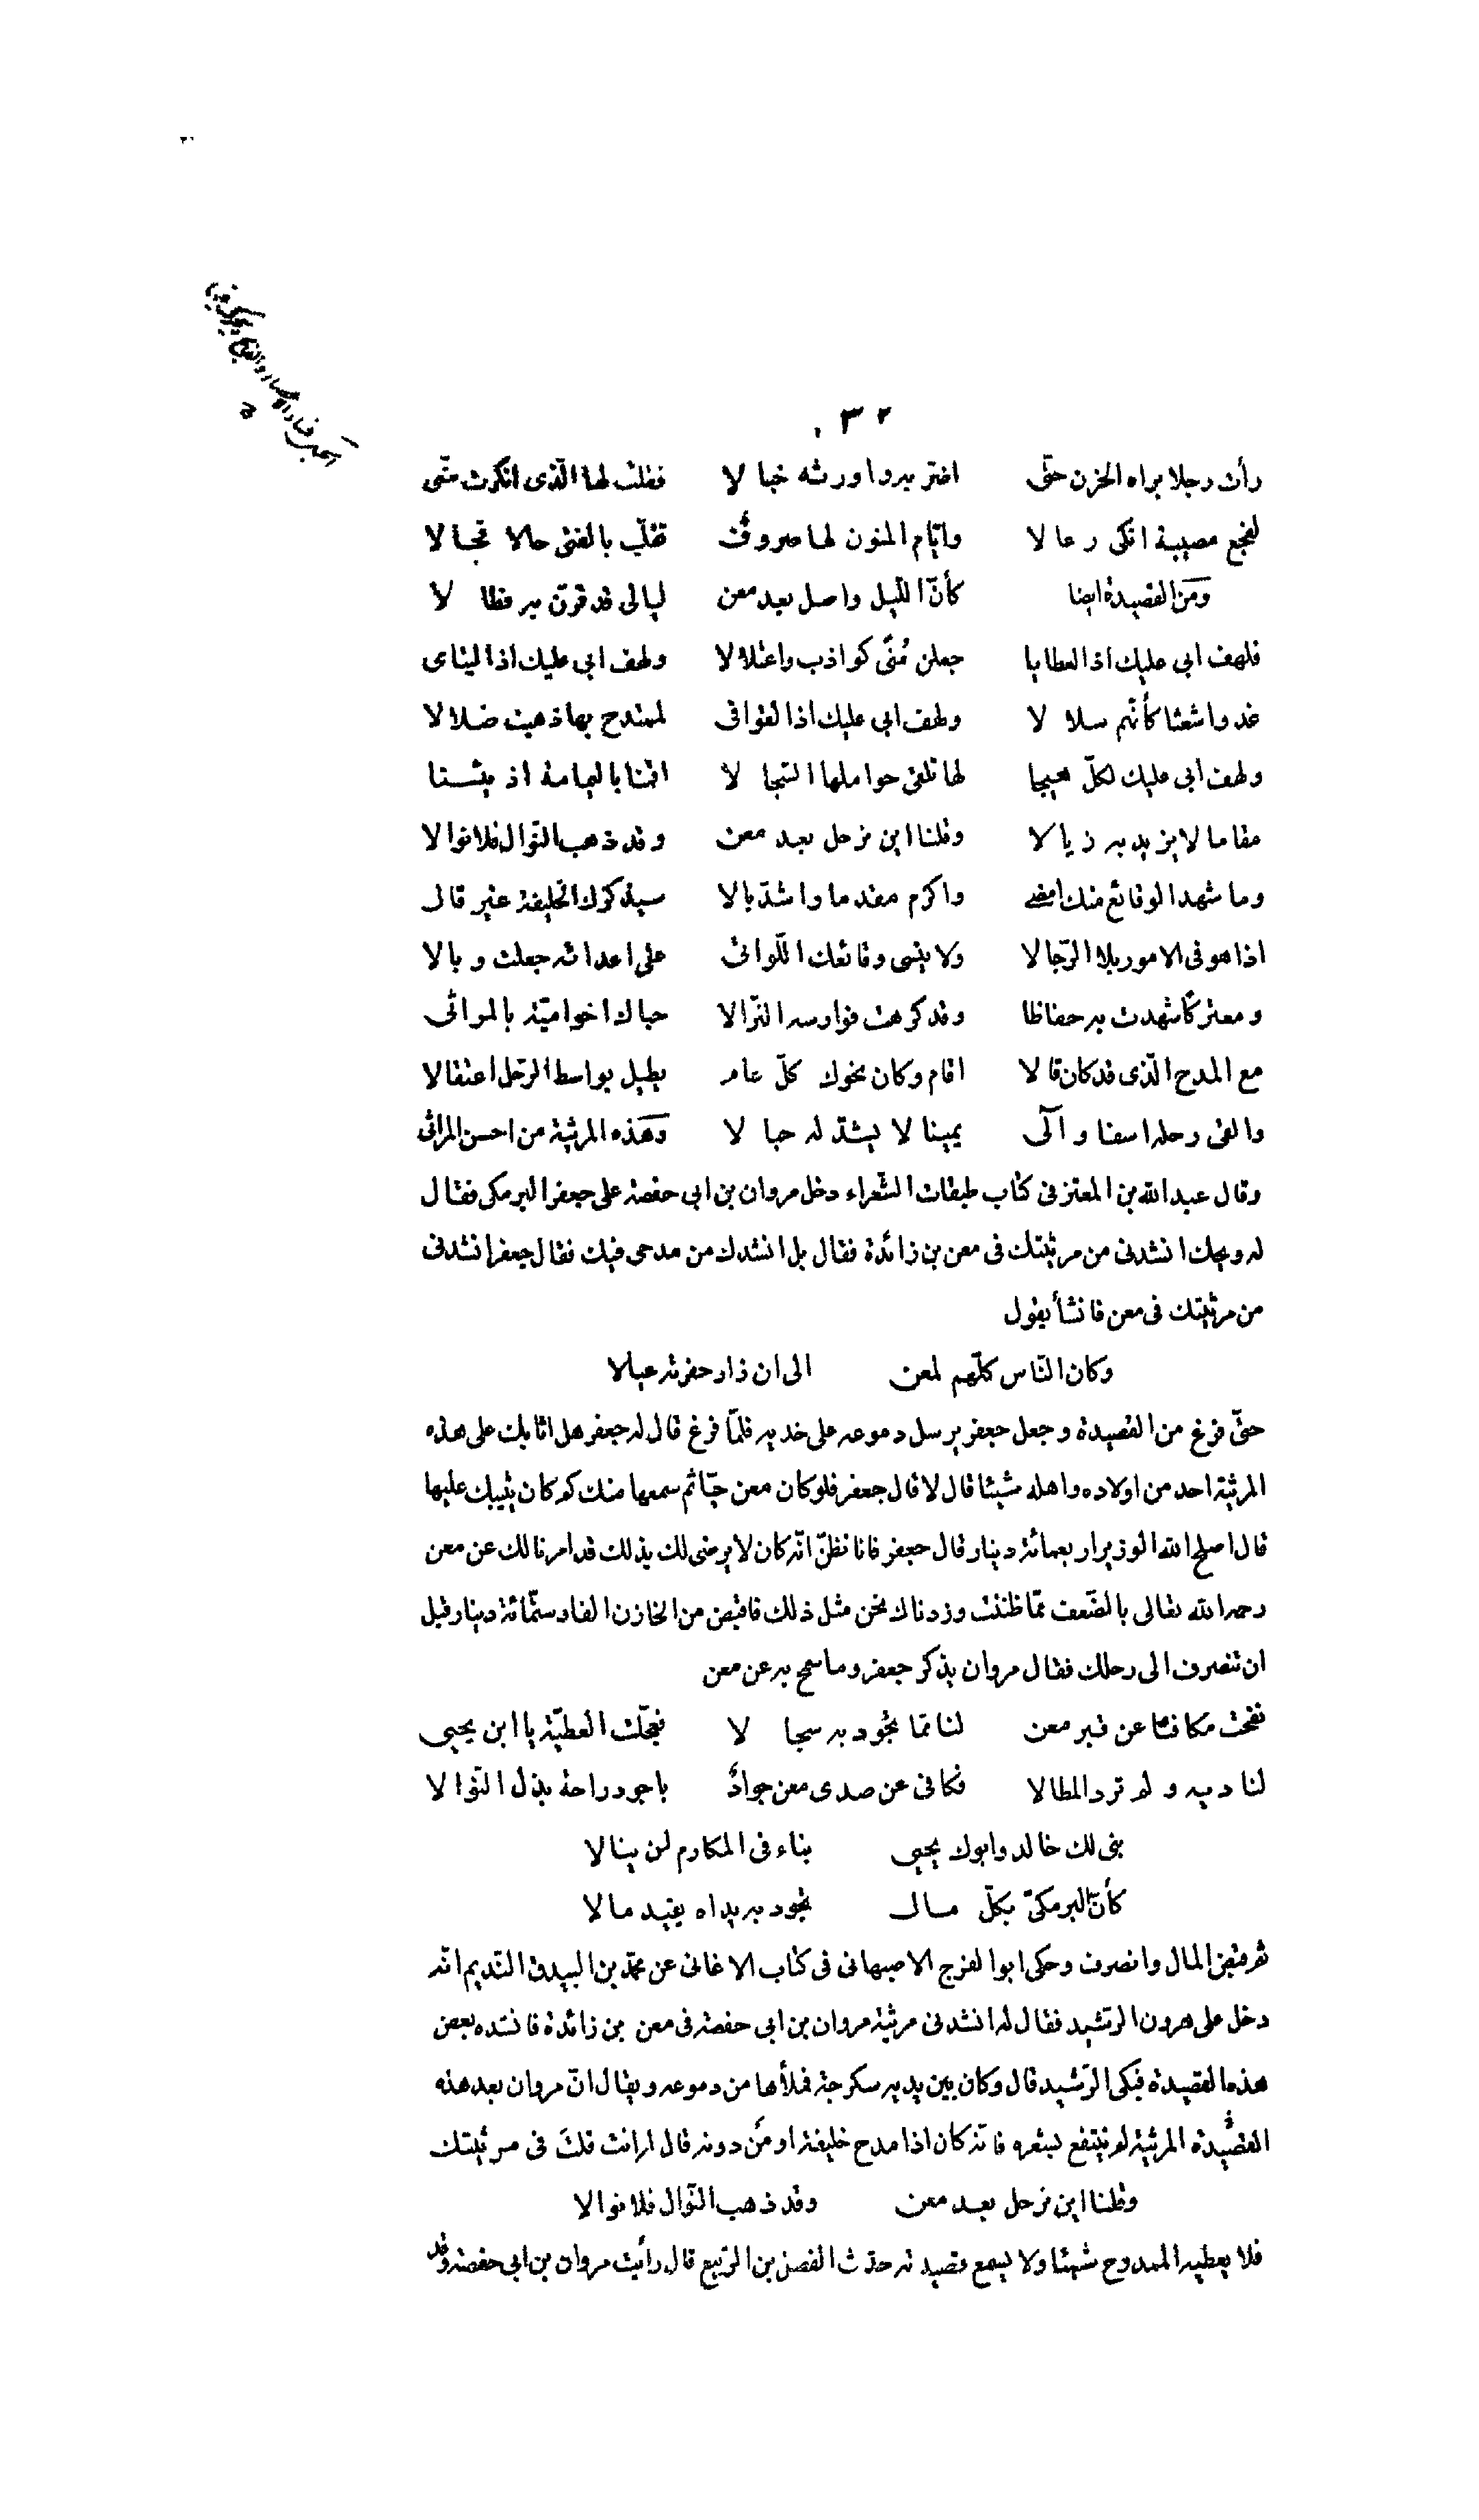 ٣٢
رأت رجلا براه الحزن حتّى اضرّ به واورثه خبالا فقلت لها الّذى انكرت منّى
لفجع مصيبة انكى وعالا وايّام المنون لها صروفٌ تقلّب بالفتى حالا فحالا
ومن القصيدة ايضا كأنّ اللّيل واصل بعد معن ليالى قد قرنّ به فطالا
فلهف ابى عليك اذا العطايا جعلن مُنًى كواذب واعتلالا ولهف ابى عليك اذا اليتامى
غدوا شعثا كأنّهم سلالا ولهف ابى عليك اذا القوافى لممتدح بها ذهبت ضلالا
ولهف أبى عليك لكلّ هيجا لها تلقى حواملها السّجالا اقمنا باليمامة اذ يئسنا
مقاما لا يزيد به زيالا وقلنا اين نرحل بعد معن وقد ذهب النّوال فلا نوالا
وما شهد الوقائع منك امضى واكرم مقدما واشدّ بالا سيذكرك الخليفة غير قال
اذا هو فى الامور بلا الرّجالا ولا ينسى وقائعك اللّواتى على اعدائه جعلت وبالا
ومعتركًا شهدت به حفاظا وقد كرهت فوارسه النّزالا حباك اخو اميّة بالمراثى
مع المدح الّذى قد كان قالا اقام وكان نحوك كلّ عام يطيل بواسط الرّحل اعتقالا
والقى رحله اسفا وآلى يمينا لا يشدّ له حبالا وهذه المرثية من احسن المراثى
وقال عبد الله بن المعتز فى كتاب طبقات الشّعراء دخل مروان بن ابى حفصة على جعفر البرمكى فقال
له ويحك انشدنى من مرثيتك فى معن بن زائدة فقال بل انشدك من مدحى فيك فقال جعفر انشدنى
من مرثيتك فى معن فانشأ يقول
وكان النّاس كلّهم لمعن الى ان زار حفرته عيالا
حتّى فرغ من القصيدة وجعل جعفر يرسل دموعه على خديه فلمّا فرغ قال له جعفر هل اثابك على هذه
المرثية احد من اولاده واهله شيئا قال لا قال جعفر فلو كان معن حيّا ثم سمعها منك كم كان يثيبك عليها
قال اصلح الله الوزير اربعمائة دينار قال جعفر فانا نظنّ انّه كان لا يرضى لك بذلك قد امرنا لك عن معن
رحمه الله تعالى بالضّعف ممّا ظننت وزدناك نحن مثل ذلك فاقبض من الخازن الفا وستّمائة دينار قبل
ان تنصرف الى رحلك فقال مروان يذكر جعفر وما سمح به عن معن
نفحت مكافئًا عن قبر معن لنا ممّا تجود به سجالا فعجّلت العطيّة يا ابن يحيى
لناديه ولم ترد المطالا فكافى عن صدى معن جوادٌ باجود راحة بذل النّوالا
بنى لك خالد وابوك يحيى بناء فى المكارم لن ينالا
كأنّ البرمكىّ بكلّ مال تجود به يداه يفيد مالا
ثم قبض المال وانصرف وحكى ابو الفرج الاصبهانى فى كتاب الاغانى عن محمّد بن البيدق النّديم انّه
دخل على هرون الرّشيد فقال له انشدنى مرثية مروان بن ابى حفصة فى معن بن زائدة فانشده بعض
هذه القصيدة فبكى الرّشيد قال وكان بين يديه سكرجة فملأها من دموعه ويقال انّ مروان بعد هذه
القصيدة المرثية لم ينتفع بشعره فانّه كان اذا مدح خليفة او مَن دونه قال له انت قلتَ فى مرثيتك
وقلنا اين نرحل بعد معن وقد ذهب النّوال فلا نوالا
فلا يعطيه الممدوح شيئا ولا يسمع قصيدته حدّث الفضل بن الرّبيع قال رأيت مروان بن ابى حفصة وقد